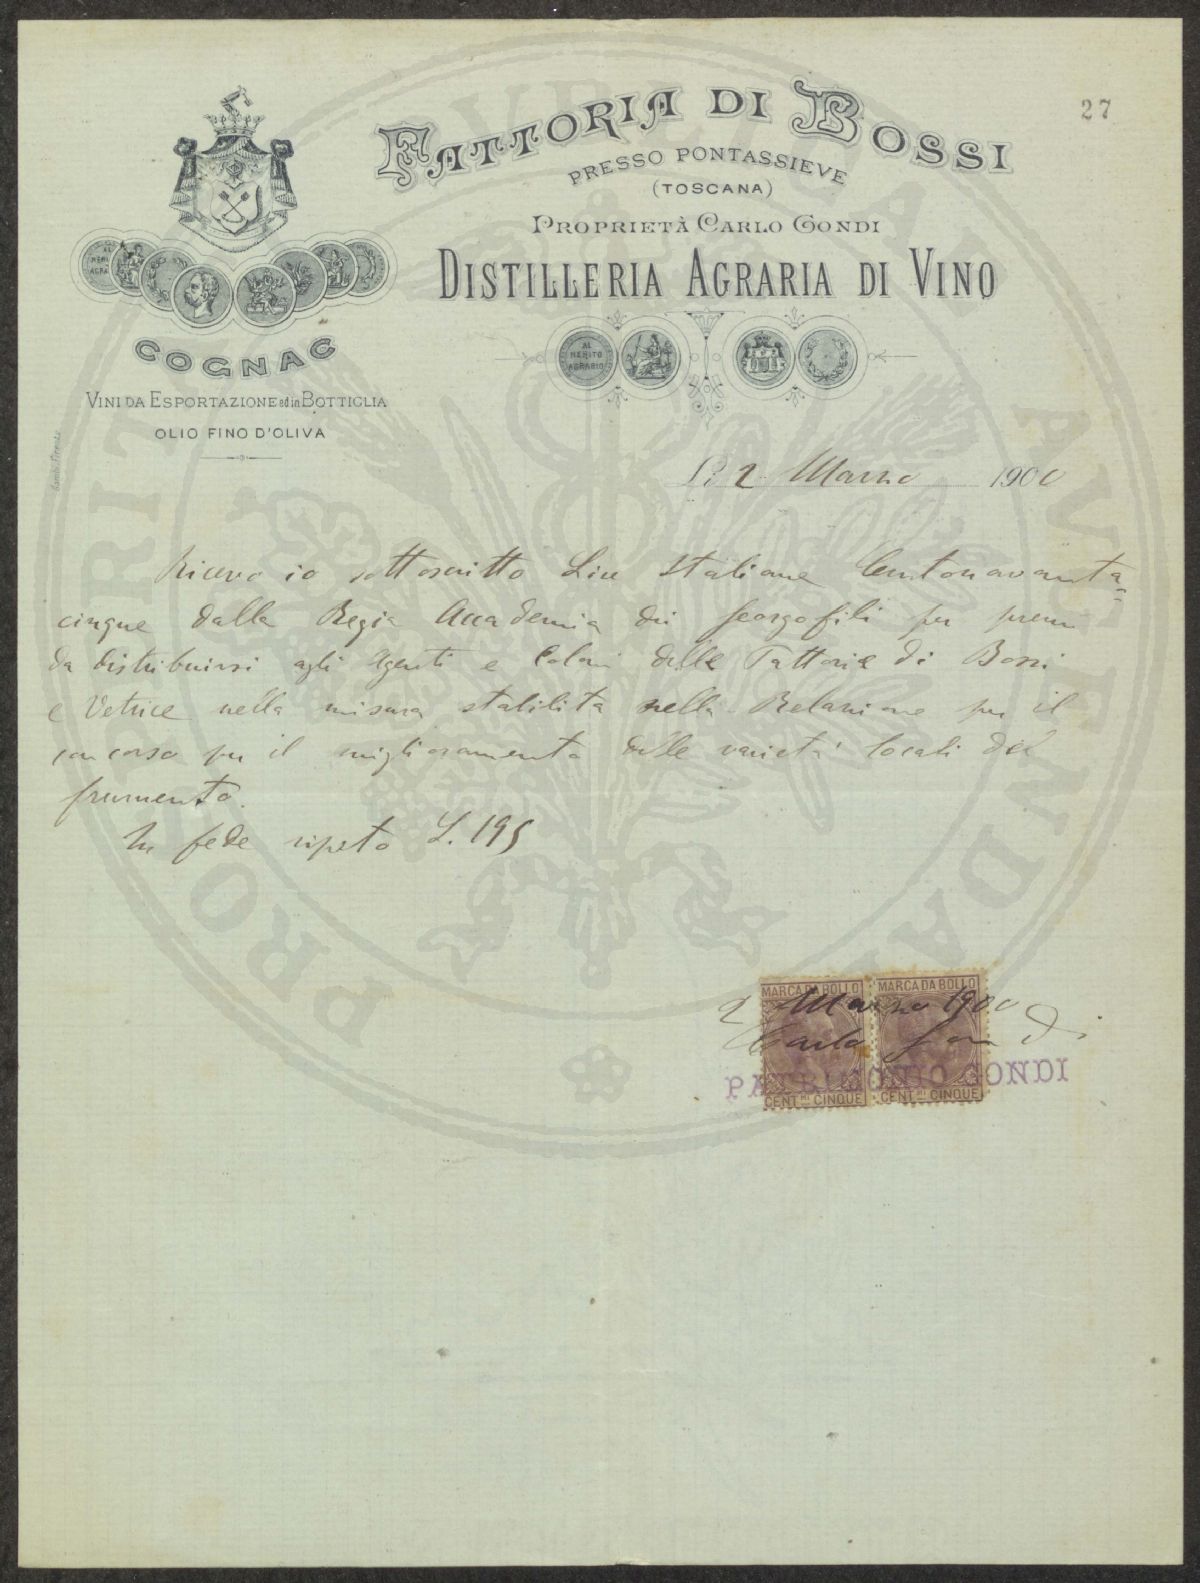 27
FATTORIA DI BOSSI
PRESSO PONTASSIEVE
(TOSCANA)
PROPRIETÀ CARLO GONDI
DISTILLERIA AGRARIA DI VINO
AL MERITO AGRARIO
COGNAC
VINI DA ESPORTAZIONE ed in BOTTIGLIA
OLIO FINO D'OLIVA
AL MERITO AGRARIO
Li 2 Marzo 1900
Ricevo io sottoscritto Lire Italiane Centonovanta=
cinque dalla Regia Accademia dei Georgofili per premi
da distribuirsi agli Agenti e Coloni delle Fattorie di Bossi
e Vetrice nella misura stabilita nella Relazione per il
concorso per il miglioramento delle varietà locali del
frumento.
In fede ripeto L. 195
MARCA DA BOLLO MARCA DA BOLLO
2 Marzo 1900
Carlo Gondi
PATRIMONIO GONDI
CENT.MI CINQUE CENT.MI CINQUE
PROSPERITATI PUBLICAE AUGENDAE